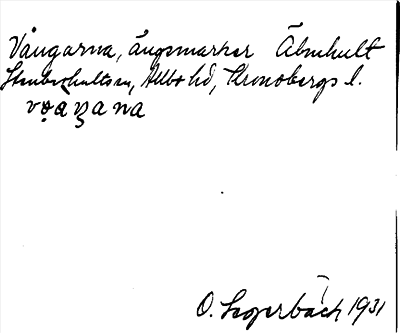 Vångarna, ängsmarker Älmhult
Stenbrohults sn, Allbo hd, Kronobergs l.
O. Lagerbäck 1931